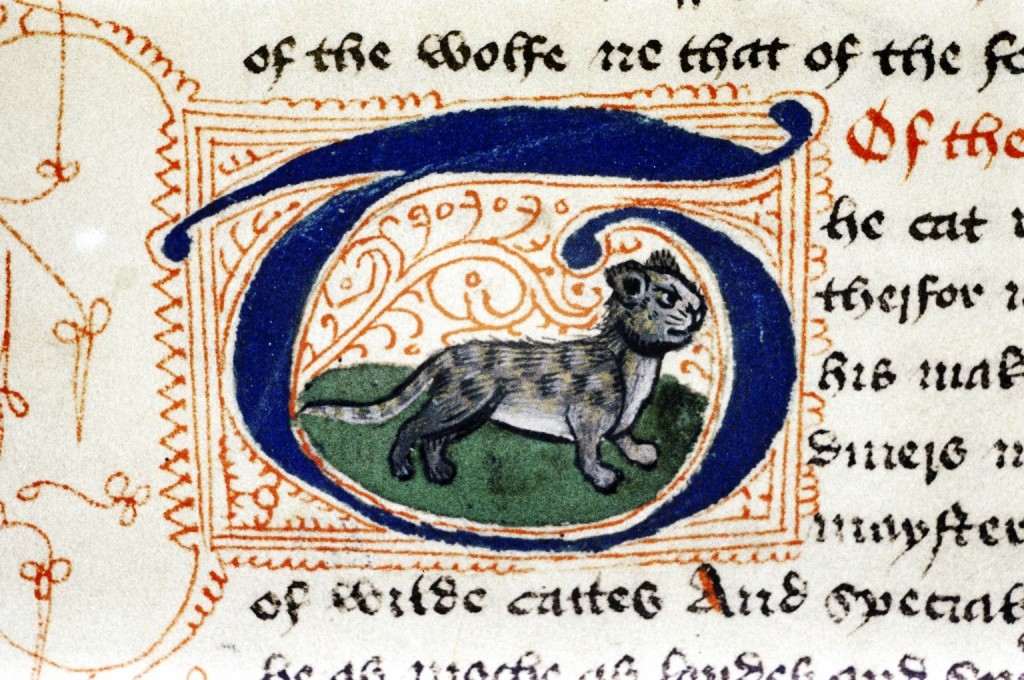 of the wolfe ne that of the
Of the
The cat
therfor
his mak
diuers
mayster
of wilde cattes And special
be as moche as